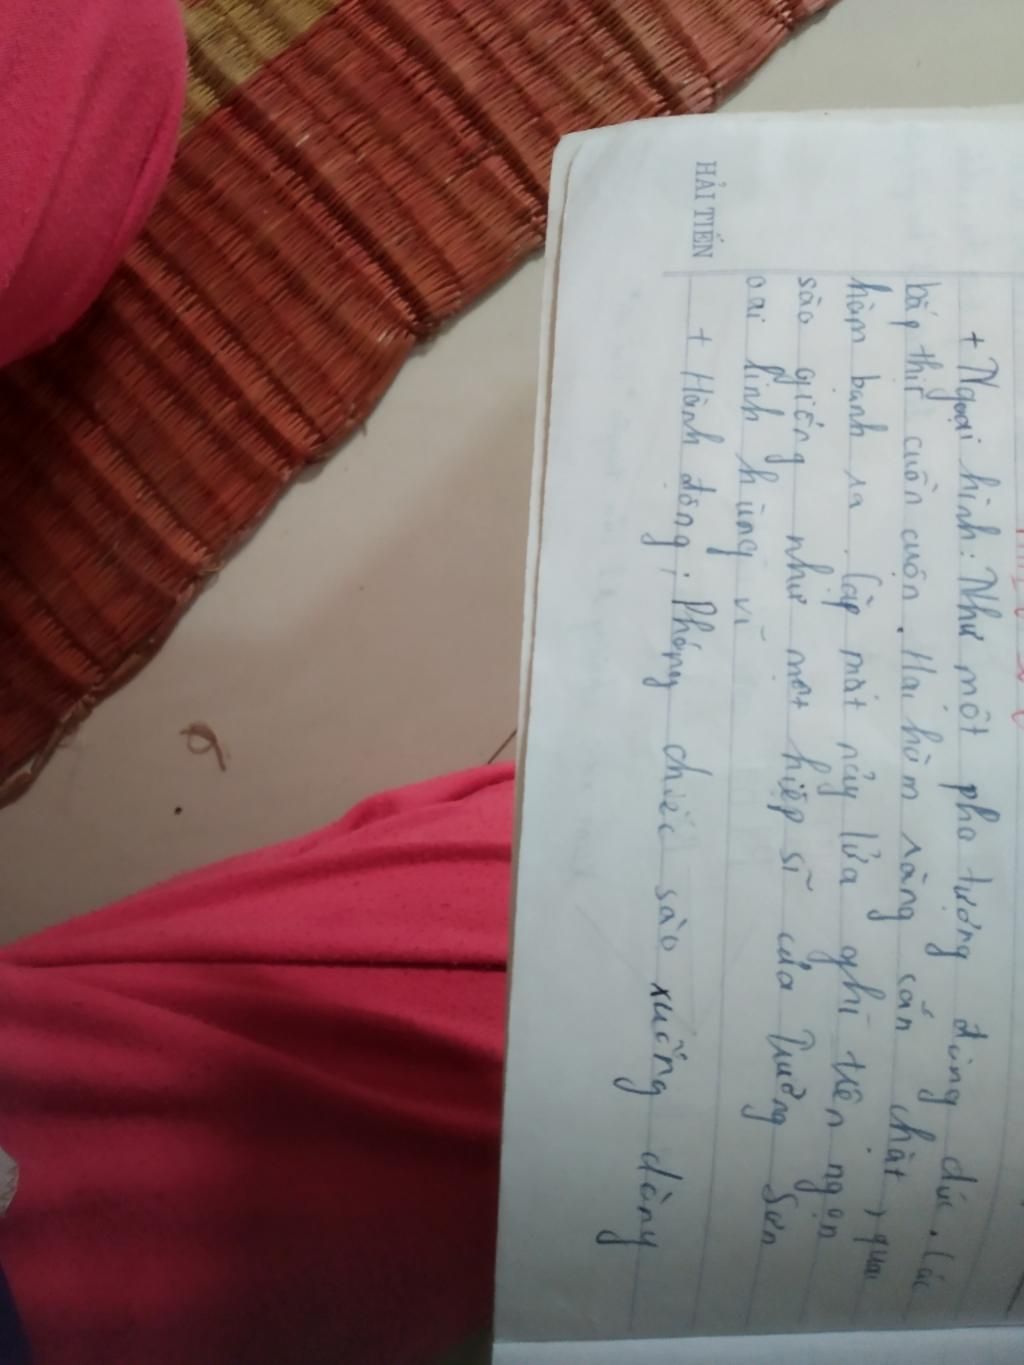 + Ngoại hình: Như một pho tượng đồng đúc. Các
bắp thịt cuồn cuộn. Hai hàm răng cắn chặt, quai
hàm bạnh ra. Cặp mắt nảy lửa ghì trên ngọn
sào giống như một hiệp sĩ của Trường Sơn
oai linh hùng vĩ
+ Hành động: Phóng chiếc sào xuống dòng
HẢI TIẾN